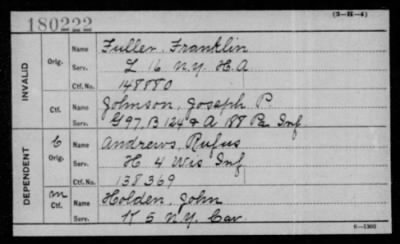 180222 (3-H-4)
INVALID
Orig. Name Fuller, Franklin
Serv. L 16 N.Y. H.A
Ctf. No. 148880
Ctf. Name Johnson, Joseph P.
Serv. G 97, B 124 & A 188 Pa Inf
DEPENDENT
C Orig. Name Andrews, Rufus
Serv. H 4 Wis Inf
Ctf. No. 138369
m Ctf. Name Holden, John
Serv. K 5 N.Y. Cav